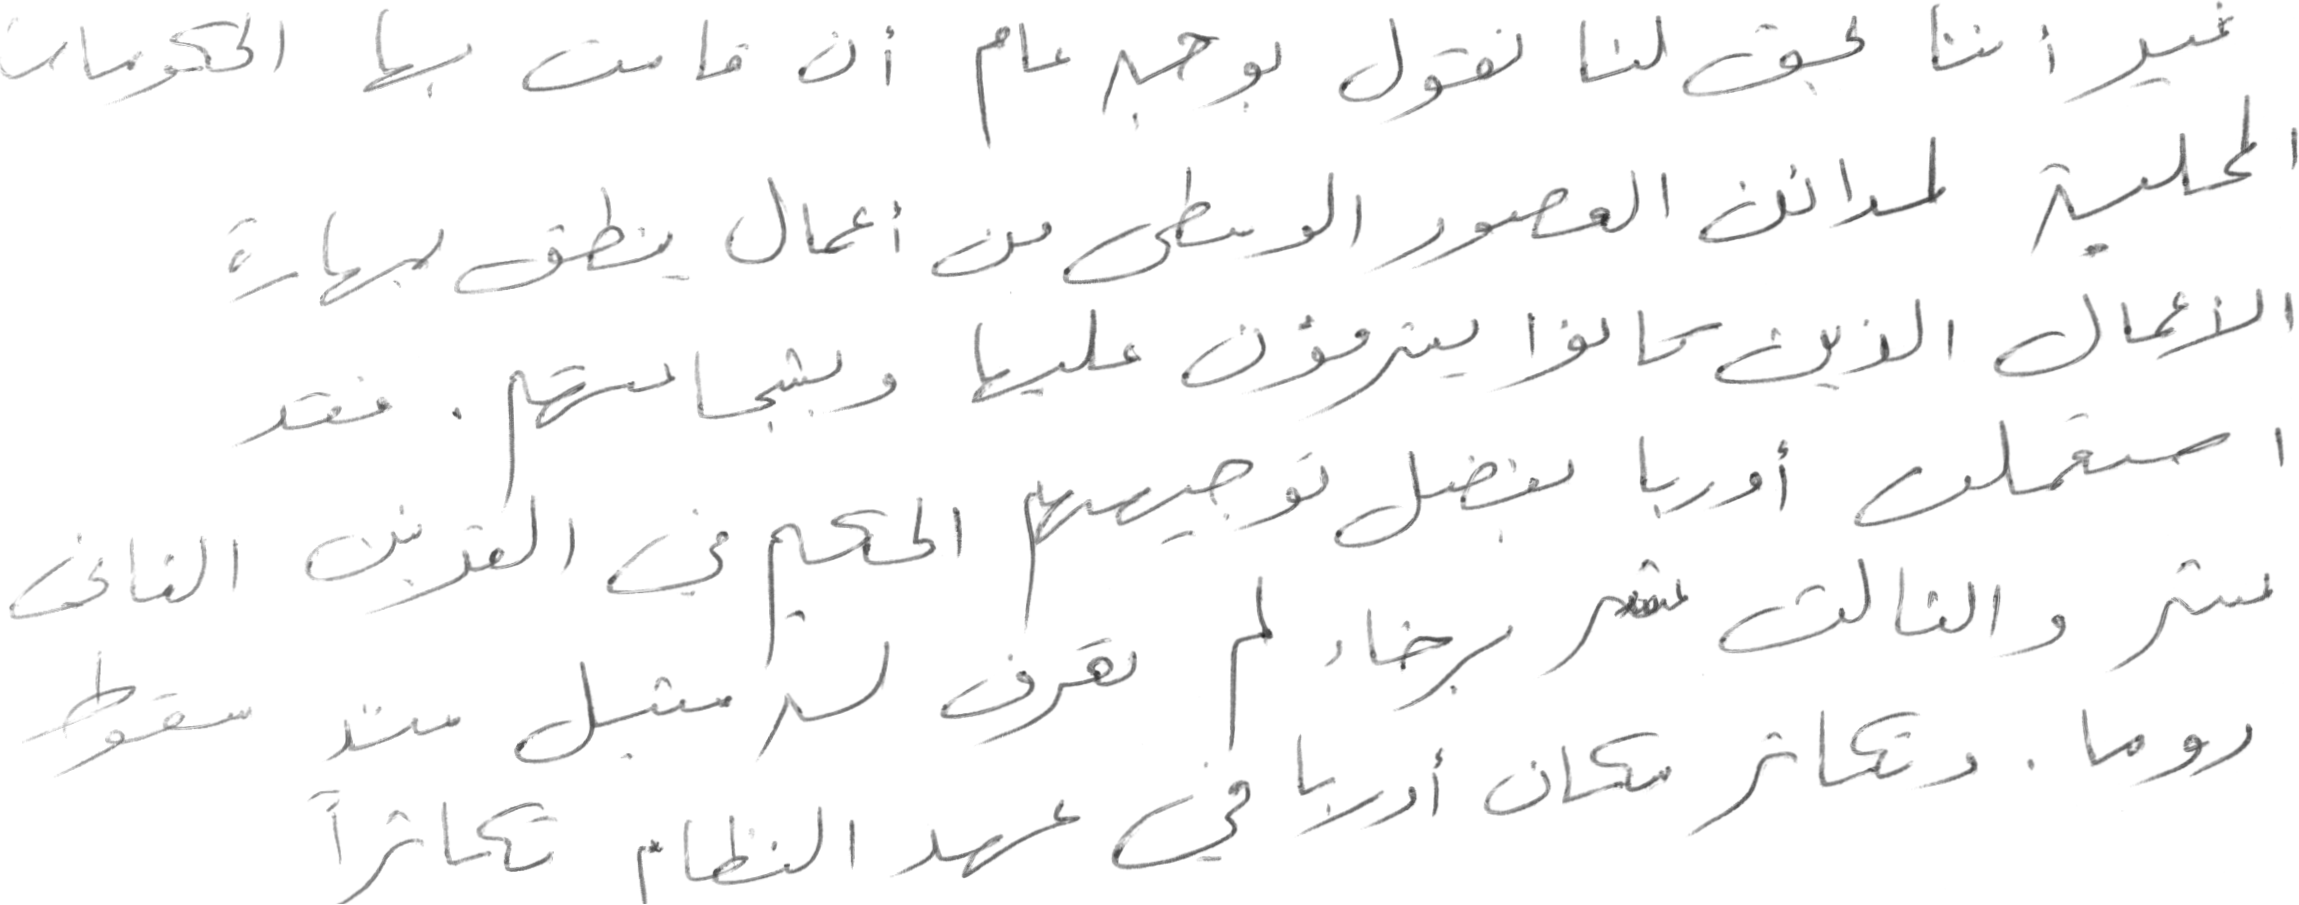 غير أننا يحق لنا نقول بوجه عام أن قامت بها الحكومات
المحلية لمدائن العصور الوسطى من أعمال ينطق بمهارة
الأعمال الذين كانوا يشرفون عليها وبشجاعتهم. فقد
استمتعت أوربا بفضل توجيههم الحكيم في القرنين الثاني
عشر والثالث عشر برخاء لم تعرف له مثيل منذ سقوط
روما. وتكاثر سكان أوربا في عهد النظام تكاثراً